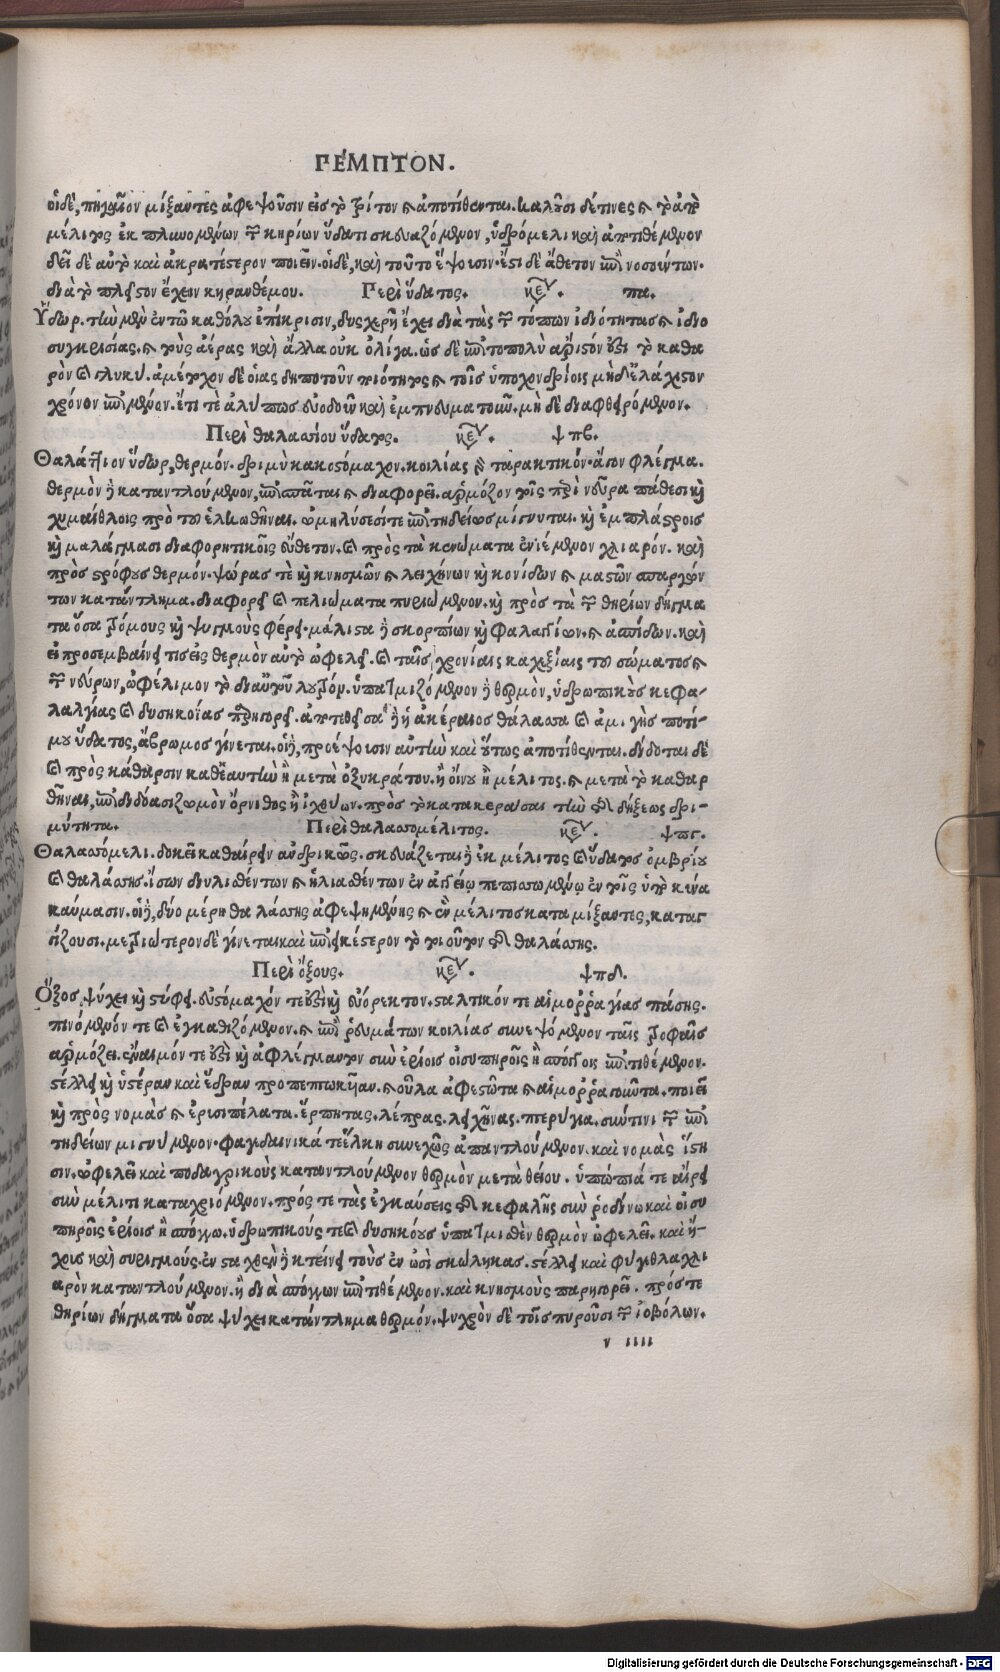 ΠΕΜΠΤΟΝ.
οἱδὲ, πηγαῖον μίξαντες ἀφεψοῦσιν εἰς τὸ τρίτον καὶ ἀποτίθενται. καλοῦσι δέ τινες καὶ τὸ ἀπὸ
μέλιτος ἐκ πλυνομένων τῶν κηρίων ὕδατι σκευαζόμενον, ὑδρόμελι καὶ ἀποτιθέμενον
δεῖ δὲ αὐτὸ καὶ ἀκρατέστερον ποιεῖν. οἱδὲ, καὶ τοῦτο ἕψουσιν. ἔστι δὲ ἄθετον ἐπὶ νοσούντων.
διὰ τὸ πλεῖστον ἔχειν κηρανθέμου. Περὶ ὕδατος. κεφ. πα.
Ὕδωρ. τὴν μὲν ἐν τῷ καθόλου ἐπίκρισιν, δυσχερῆ ἔχει διὰ τὰς τῶν τόπων ἰδιότητας καὶ ἰδιο
συγκρισίας. καὶ τοὺς ἀέρας καὶ ἄλλα οὐκ ὀλίγα. ὡς δὲ ἐπιτοπολὺ ἄριστόν ἐστι τὸ καθα
ρὸν καὶ γλυκὺ. ἀμέτοχον δὲ οἵας δηποτοῦν ποιότητος καὶ τοῖς ὑποχονδρίοις μηδὲ ἐλάχιστον
χρόνον ἐπιμένον. ἔτι τὲ ἀλύπως εὐοδοῦν καὶ ἐμπνευματοῦν. μὴ δὲ διαφθειρόμενον.
Περὶ θαλασσίου ὕδατος. κεφ. ψπβ.
Θαλάττιον ὕδωρ, θερμόν. δριμὺ κακοστόμαχον. κοιλίας δὲ ταρακτικόν. ἄγον φλέγμα.
θερμὸν δὲ καταντλούμενον, ἐπισπᾶται καὶ διαφορεῖ. ἁρμόζον τοῖς περὶ νεῦρα πάθεσι καὶ
χυμαίθλοις πρὸ τοῦ ἑλκωθῆναι. ὠμηλύσεσίτε ἐπιτηδείως μίγνυται. καὶ ἐμπλάστροις
καὶ μαλάγμασι διαφορητικοῖς εὔθετον. καὶ πρὸς τὰ κενώματα ἐνιέμενον χλιαρόν. καὶ
πρὸς στρόφους θερμόν. ψώρας τὲ καὶ κνησμῶν καὶ λειχήνων καὶ κονίδων καὶ μαστῶν σπαργών
των κατάντλημα. διαφορεῖ καὶ πελιώματα πυριώμενον. καὶ πρὸς τὰ τῶν θηρίων δήγμα
τα ὅσα τρόμους καὶ ψυγμοὺς φέρει. μάλιστα δὲ σκορπίων καὶ φαλαγγίων. καὶ ἀσπίδων. καὶ
εἰ προσεμβαίνει τις εἰς θερμὸν αὐτὸ ὠφελεῖ. καὶ ταῖς χρονίαις καχεξίαις τοῦ σώματος καὶ
τῶν νεύρων, ὠφέλιμον τὸ δι αὐτοῦ λουτρόν. ὑπατμιζόμενον δὲ θερμὸν, ὑδρωπικοὺς κεφα-
λαλγίας καὶ δυσηκοΐας παρηγορεῖ. ἀποτεθεῖσα δὲ ἡ ἀκέραιος θάλασσα καὶ ἀμιγὴς ποτί-
μου ὕδατος, ἄβρωμος γίνεται. οἱ δὲ, προέψουσιν αὐτὴν καὶ οὕτως ἀποτίθενται. δίδοται δὲ
καὶ πρὸς κάθαρσιν καθ᾽ἑαυτὴν ἢ μετὰ ὀξυκράτου. ἢ οἴνου ἢ μέλιτος. καὶ μετὰ τὸ καθαρ
θῆναι, ἐπιδιδόασι ζωμὸν ὄρνιθος ἢ ἰχθύων. πρὸς τὸ κατακεράσαι τὴν τῆς δήξεως δρι-
μύτητα. Περὶ θαλασσομέλιτος. κεφ. ψπγ.
Θαλασσόμελι. δοκεῖ καθαίρειν ἀνδρικῶς. σκευάζεται δὲ ἐκ μέλιτος καὶ ὕδατος ὀμβρίου
καὶ θαλάσσης. ἴσων διυλισθέντων καὶ ἡλιασθέντων ἐν ἀγγείῳ πεπισσωμένῳ ἐν τοῖς ὑπὸ κύνα
καύμασιν. οἱ δὲ, δύο μέρη θαλάσσης ἀφεψημένης καὶ ἓν μέλιτος καταμίξαντες, καταγ
γίζουσι. μετριώτερον δὲ γίνεται καὶ ἐπιεικέστερον τὸ τοιοῦτον τῆς θαλάσσης.
Περὶ ὄξους. κεφ. ψπδ.
Ὄξος, ψύχει καὶ στύφει. εὐστόμαχόν τε ἐστὶ καὶ εὐόρεκτον. σταλτικόν τε αἱμοῤῥαγίας πάσης.
πινόμενόν τε καὶ ἐγκαθιζόμενον. καὶ ἐπὶ ῥευμάτων κοιλίας συνεψόμενον ταῖς τροφαῖς
ἁρμόζει. ἔναιμόν τε ἐστὶ καὶ ἀφλέγμαντον σὺν ἐρίοις οἰσυπηροῖς ἢ σπόγγοις ἐπιτιθέμενον.
στέλλει καὶ ὑστέραν καὶ ἕδραν προπεπτωκυῖαν. καὶ οὖλα ἀφεστῶτα καὶ αἱμοῤῥαγοῦντα. ποιεῖ
καὶ πρὸς νομὰς καὶ ἐρισιπέλατα. ἕρπητας. λέπρας. λειχῆνας. πτερύγια. σύντινι τῶν ἐπι
τηδείων μιγνύμενον. φαγεδαινικά τε ἕλκη συνεχῶς ἀπαντλούμενον. καὶ νομὰς ἵστη
σιν. ὠφελεῖ καὶ ποδαγρικοὺς καταντλούμενον θερμὸν μετὰ θείου. ὑπώπιά τε αἴρει
σὺν μέλιτι καταχριόμενον. πρός τε τὰς ἐγκαύσεις τῆς κεφαλῆς σὺν ῥοδίνω καὶ οἰσυ
πηροῖς ἐρίοις ἢ σπόγγω. ὑδρωπικούς τε καὶ δυσηκόους ὑπατμισθὲν θερμὸν ὠφελεῖ. καὶ ἤ-
χους καὶ συριγμούς. ἐν σταχθὲν δὲ κτείνει τοὺς ἐν ὠσὶ σκώληκας. στέλλει καὶ φύγεθλα χλι
αρὸν καταντλούμενον. ἢ διὰ σπόγγων ἐπιτιθέμενον. καὶ κνησμοὺς παρηγορεῖ. πρός τε
θηρίων δήγματα ὅσα ψύχει κατάντλημα θερμόν. ψυχρὸν δὲ τοῖς πυροῦσι τῶν ἰοβόλων.
v iiii
Digitalisierung gefördert durch die Deutsche Forschungsgemeinschaft - DFG